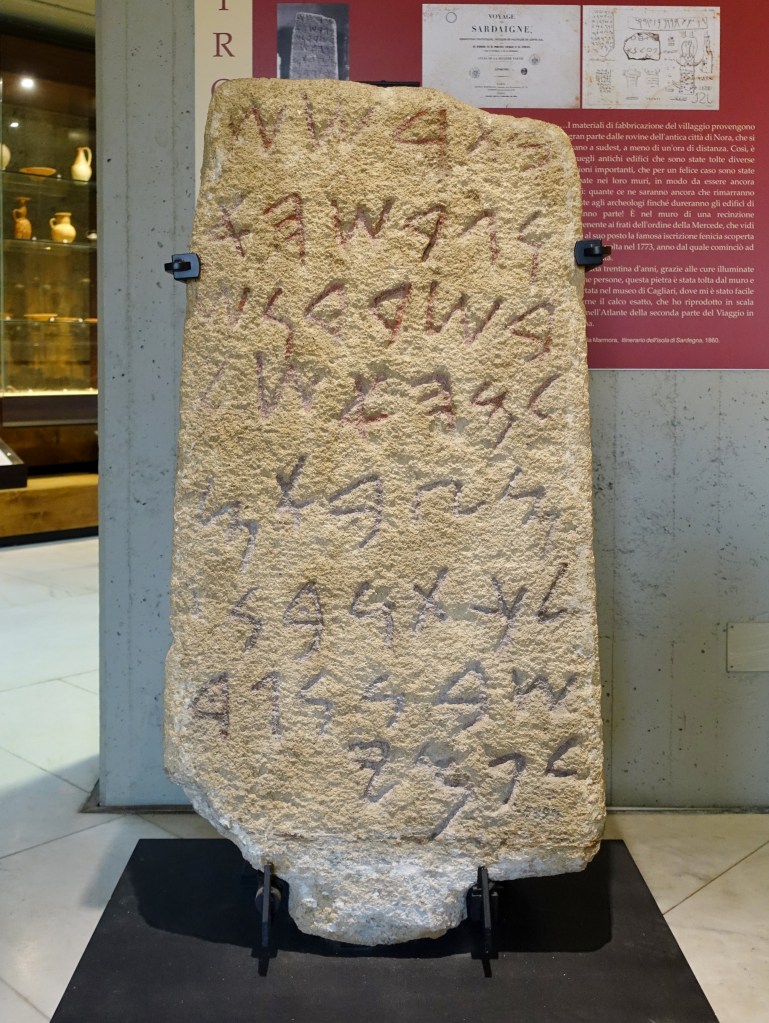 VOYAGE
SARDAIGNE,
𐤁𐤕𐤓𐤔𐤔
𐤅𐤂𐤓𐤔𐤄𐤀
𐤁𐤔𐤓𐤃𐤍𐤔
𐤋𐤌𐤄𐤀𐤔𐤋
𐤌𐤑𐤁𐤀𐤌
𐤋𐤊𐤕𐤍𐤁𐤍
𐤔𐤁𐤍𐤍𐤂𐤃
𐤋𐤐𐤌𐤉
...I materiali di fabbricazione del villaggio provengono
gran parte dalle rovine dell'antica città di Nora, che si
a sudest, a meno di un'ora di distanza. Così, è
quegli antichi edifici che sono state tolte diverse
importanti, che per un felice caso sono state
nei loro muri, in modo da essere ancora
quante ce ne saranno ancora che rimarranno
agli archeologi finché dureranno gli edifici di
parte! È nel muro di una recinzione
ai frati dell'ordine della Mercede, che vidi
al suo posto la famosa iscrizione fenicia scoperta
nel 1773, anno dal quale cominciò ad
trentina d'anni, grazie alle cure illuminate
persone, questa pietra è stata tolta dal muro e
nel museo di Cagliari, dove mi è stato facile
il calco esatto, che ho riprodotto in scala
nell'Atlante della seconda parte del Viaggio in
Marmora, Itinerario dell'Isola di Sardegna, 1860.